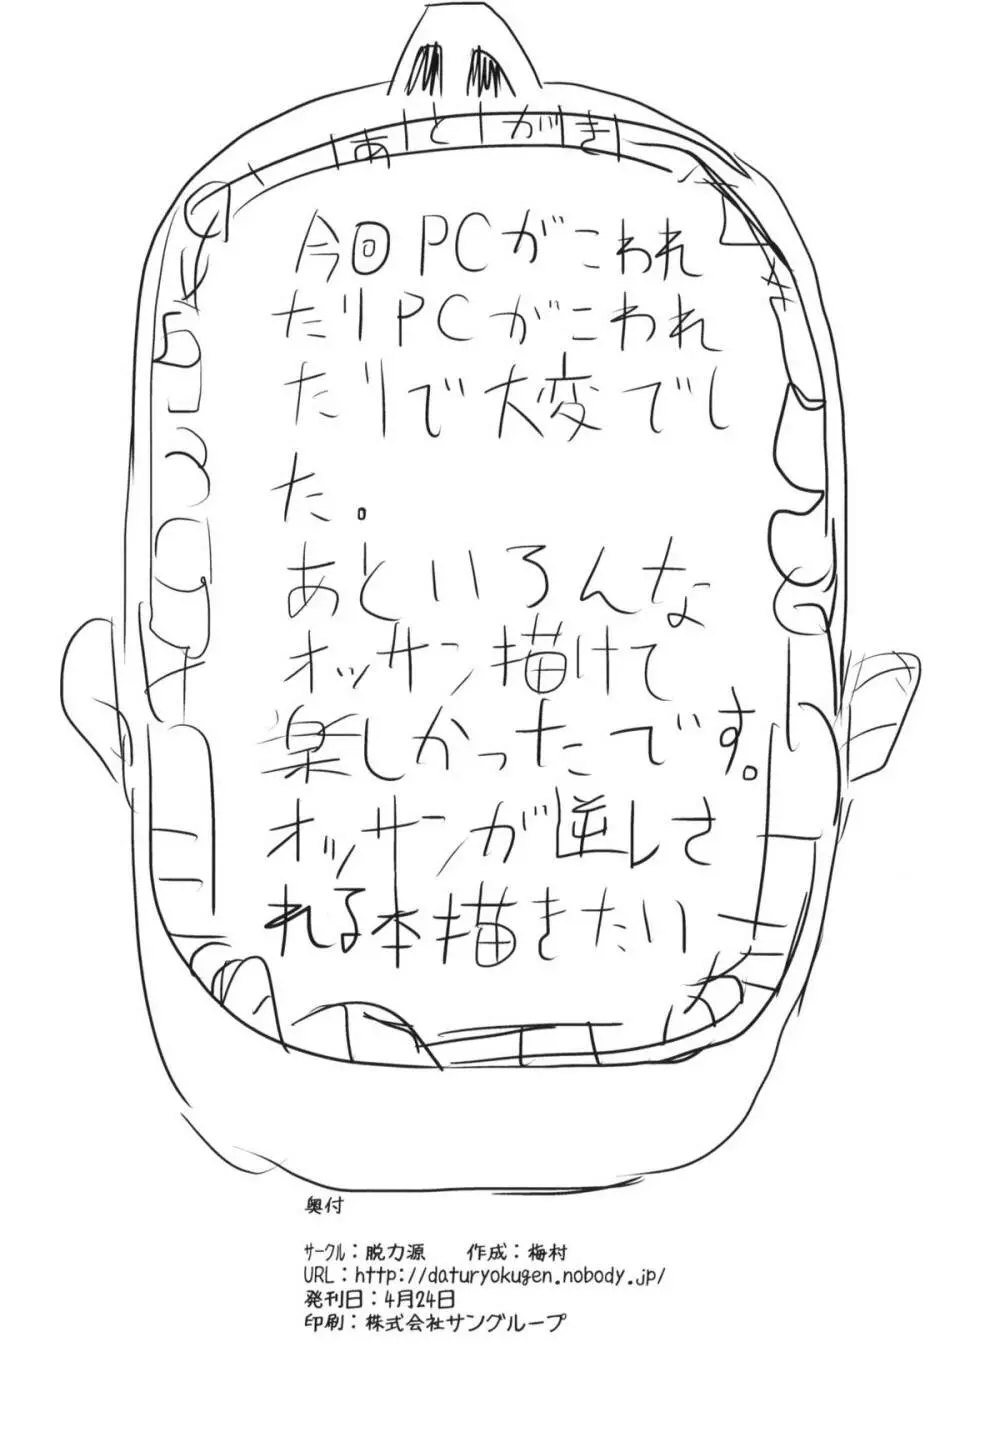 あとがき
今回PCがこわれ
たりPCがこわれ
たりで大変でし
た。
あといろんな
オッサン描けて
楽しかったです。
オッサンが逆しさ
れる本描きたい
奥付
ｻｰｸﾙ：脱力源　作成：梅村
URL：http://daturyokugen.nobody.jp/
発刊日：4月24日
印刷：株式会社サングループ